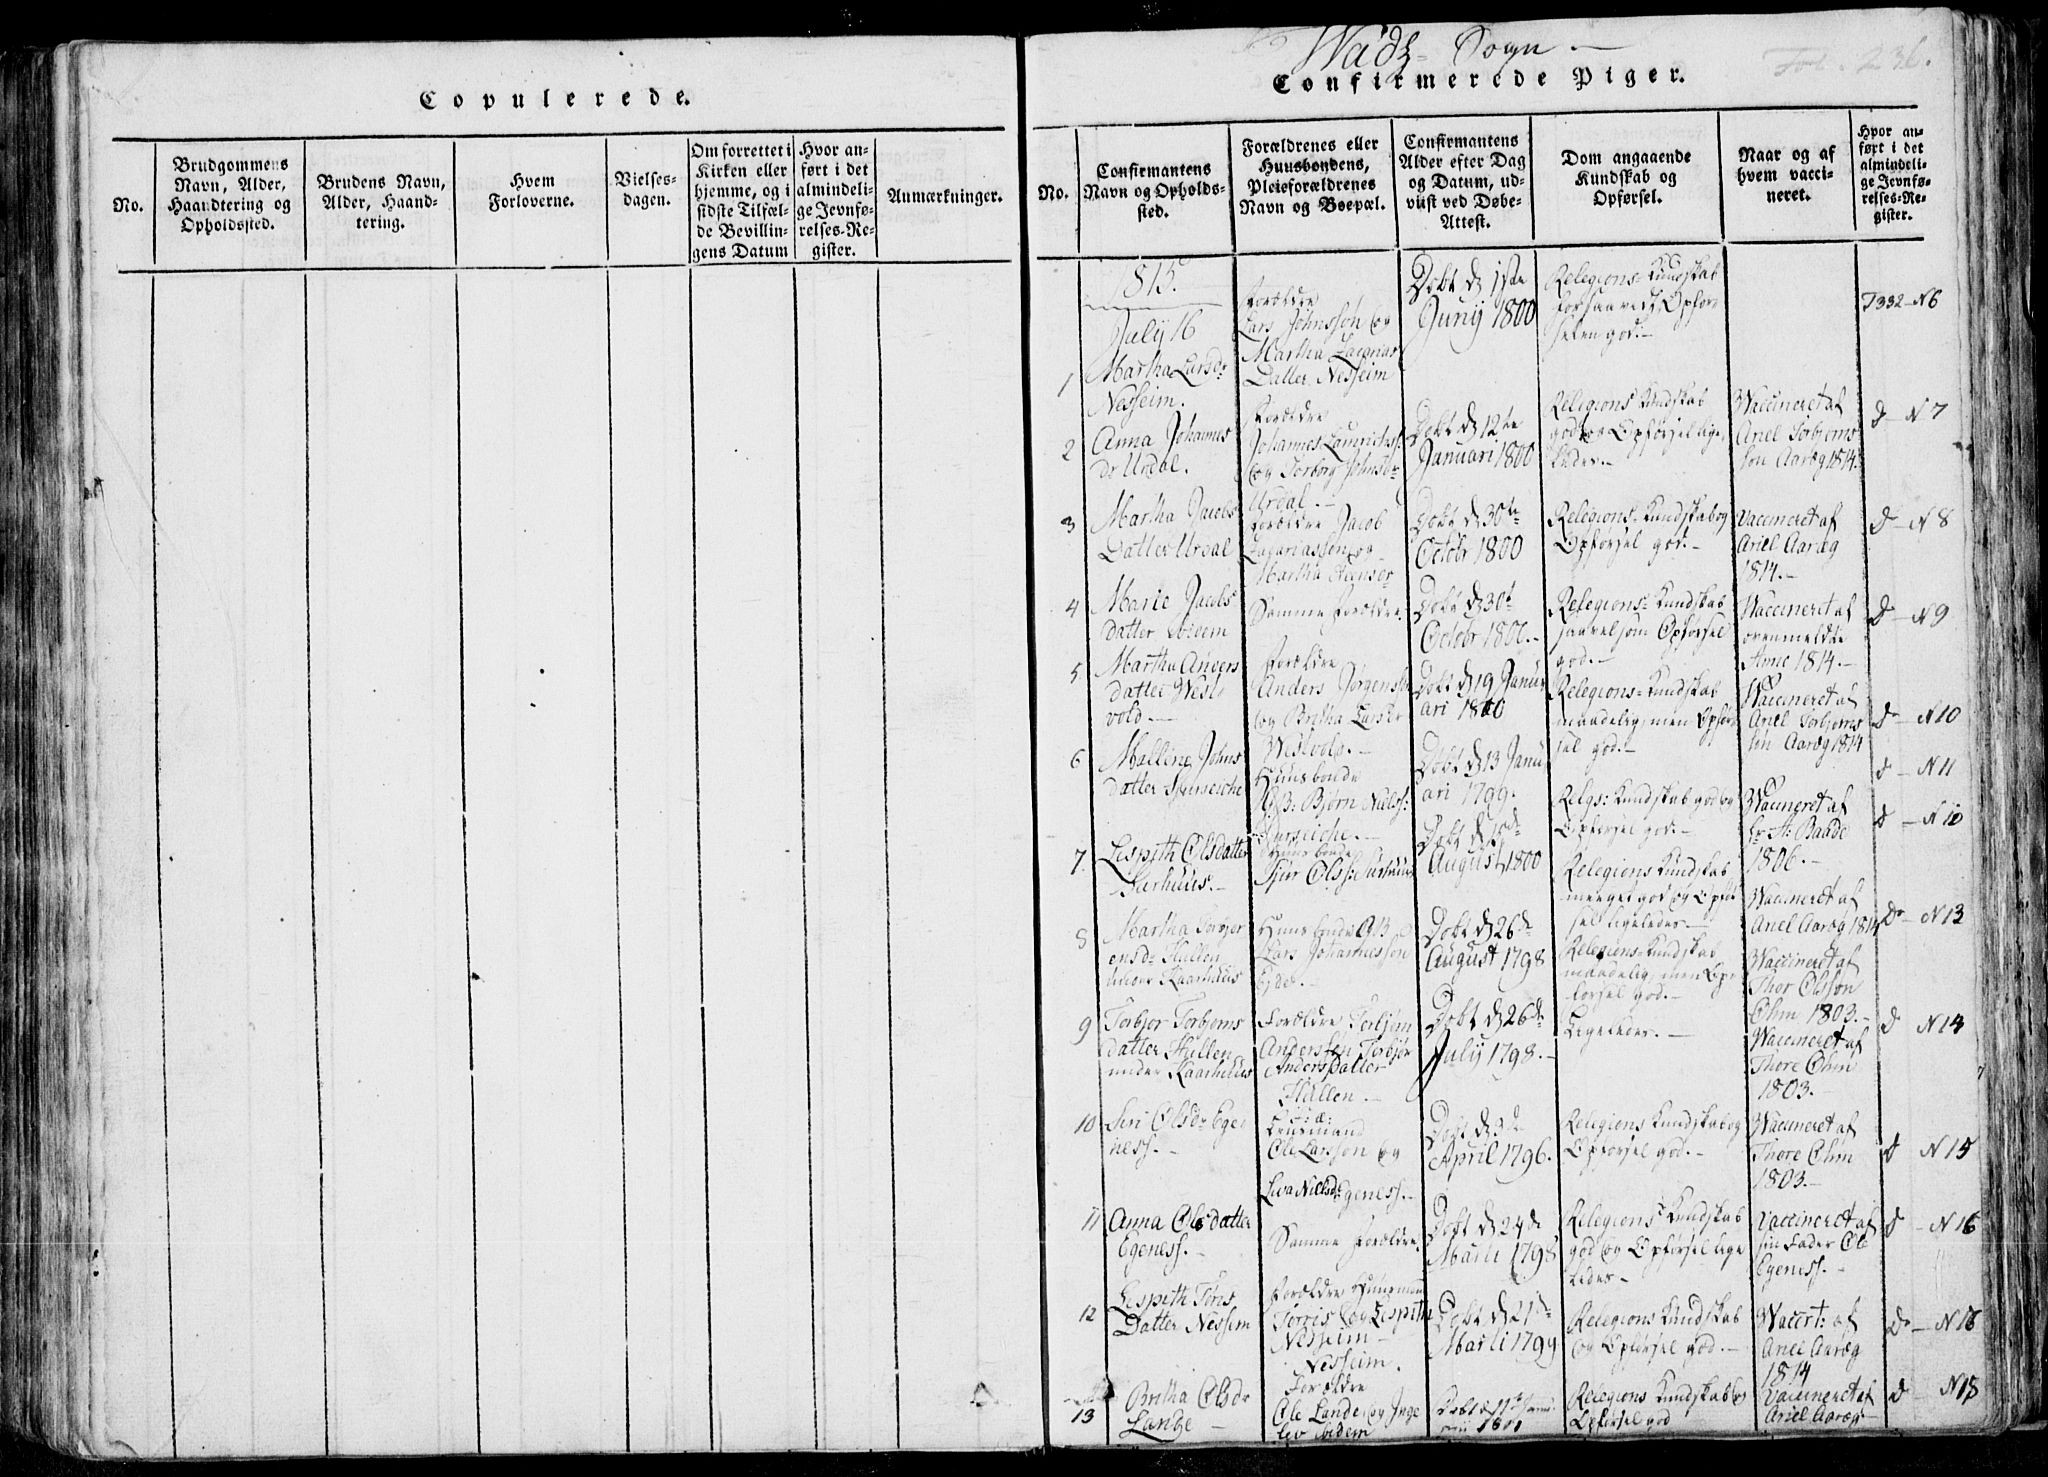 Copulerede.
No.
Brudgommens
Navn, Alder,
Haandtering og
Opholdssted.
Brudens Navn,
Alder, Haand-
tering.
Hvem
Forloverne.
Vielses-
dagen.
Om forrettet i
Kirken eller
hjemme, og i
sidste Tilfæl-
de Bevillin-
gens Datum
Hvor an-
ført i det
almindeli-
ge Jevnfø-
relses-Re-
gister.
Anmærkninger.
Wads- Sogn
Fol. 236.
Confirmerede Piger.
No.
Confirmantens
Navn og Opholds-
sted.
Forældrenes eller
Huusbondens,
Pleieforældrenes
Navn og Boepæl.
Confirmantens
Alder efter Dag
og Datum, ud-
viist ved Døbe-
Attest.
Dom angaaende
Kundskab og
Opførsel.
Naar og af
hvem vacci-
neret.
Hvor an-
ført i det
almindeli-
ge Jevnfø-
relses-Re-
gister.
1815.
July 16
1
Martha Larsdr
Nesheim.
Forældre
Lars Johnssøn og
Martha Zacarias
Datter Nesheim
Døbt d 1ste
Junij 1800
Relegions-Kundskab
forsaavidt, Opfør
selen god.-
T332-N6
2
Anna Johannes
dr Urdal.
Forældre
Johannes Lauritss:
og Torborg Johnsdr
Urdal.-
Døbt d 12te
Januari 1800
Relegions Kundskab
god og Opførsel lige
ledes.-
Waccineret af
Ariel Torbjørns
søn Aaræg 1814.
d - N 7
3
Martha Jacobs
Datter Urdal
Forældre Jacob
Zacariassøn og
Martha
Døbt d 30te
Octobr 1800
Relegions-Kundskab og
Opførsel god.-
Vaccineret af
Ariel Aaræg
1814.-
d - N 8
4
Marie Jacobs
datter ibidem
Samme Forældre.
Døbt d 30t
Octobr 1800.-
Relegions-Kundskab
saavelsom Opførsel
god.-
Waccineret af
ovenmeldte
Anno 1814.-
d - N9
5
Martha Anders
datter West
vold.-
Forældre
Anders Jørgensøn
og Britha Larsdr
Westvold.-
Døbt d 19 Janu
ari 1800
Relegions-Kundskab
maadelig, men Opfør
sel god.-
Waccineret af
Ariel Torbjørns
søn Aaræg 1814
d - N10
6
Mallene Johns
datter
Huusbonde
G.B: Bjørn Nielss:
Døbt d 13 Janu
ari 1799.
Relgs: Kundskab god og
Opførsel god.-
Waccineret af
Hr A: Baade
1806.-
d - N 11
7.
Lispeth Olsdatter
Aarhuus.-
Huusbonde
Sjur Olss: Aarhuus
August 1800
Relegions Kundskab
meeget god og Opfør
sel ligeledes.-
Waccineret af
Ariel Aaræg 1814
d - N 12
8
Martha Torbjør
ensdr Hullen
under Kaarhuus
Huusbonde G.B.
Lars Johannessøn
Egde.-
Døbt d 26de
August 1798
Relegions-Kundskab
maadelig, men Op
førsel god.-
Waccineret af
Thor Olssøn
Ohm 1803.-
do - N 13
9
Torbjor Torbjørns
datter Hullen
under Kaarhuus
Forældre Torbjørn
Anderssen Torbjør
Andersdatter
Hullen.-
Døbt d 26de
Julij 1798.-
Ligeledes.-
Waccineret af
Thore Ohm
1803.-
d N14
10
Siri Olsdr Ege
ness.-
Ole Larssøn og
Siva Nielsdr Egeness.-
Døbt d 3d
April 1796.
Relegions Kundskab og
Opførsel god.-
Waccineret af
Thore Ohm
1803.-
d N 15
11
Anna Olsdatter
Egeness.-
Samme Forældre.
Døbt d 24de
Marti 1798
Relegions Kundskab
god og Opførsel lige
ledes-
Vaccineret af
sin Fader Ole
Egeness.-
d - N 16
12
Lispeth Torris
Datter Nessem
Forældre
Torris og Lispeth
Nesheim-
Nesheim.
Døbt d 21de
Marti 1799
Relegions Kundskab
og Opførsel god.-
Waccrt: af
Ariel Aaræg
1814
do - N 18
13
Britha Olsdr
Lande-
Forældre
Ole Lande og Inge
lev ibidem
Døbt d 11te
1801
Relegions Kundskab og
Opførsel god
Vaccineret af
Ariel Aaræg
d - N 18